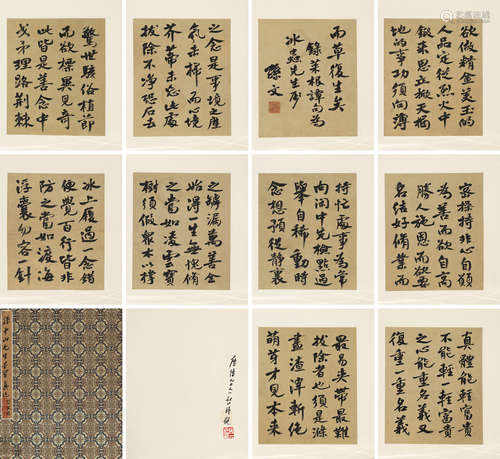 欲做精金美玉的
人品定從烈火中
鍛來思立掀天揭
地的事功須向薄
冰上履過一念錯
便覺百行皆非
防之當如渡海
浮囊勿容一針
之罅漏萬善全
始得一生無愧脩
之當如凌雲寶
樹須假衆木以撐
持忙處事為常
向閑中先檢點過
舉自稀動時
念想預從靜裏
密操持非心自息
為善而欲自高
勝人施恩而欲要
名結好脩業而
驚世駭俗植節
而欲標異見奇
此皆是善念中
戈矛理路荊棘
最易夾帶最難
拔除者也須是滌
盡渣滓斬絕
萌芽才見本來
真體能輕富貴
不能輕一輕富貴
之心能重名義又
復重一重名義
之念是事境之塵
氛未掃而心境
芥蒂未忘此處
拔除不淨恐石去
而草復生矣
錄菜根譚句為
先生
孫文